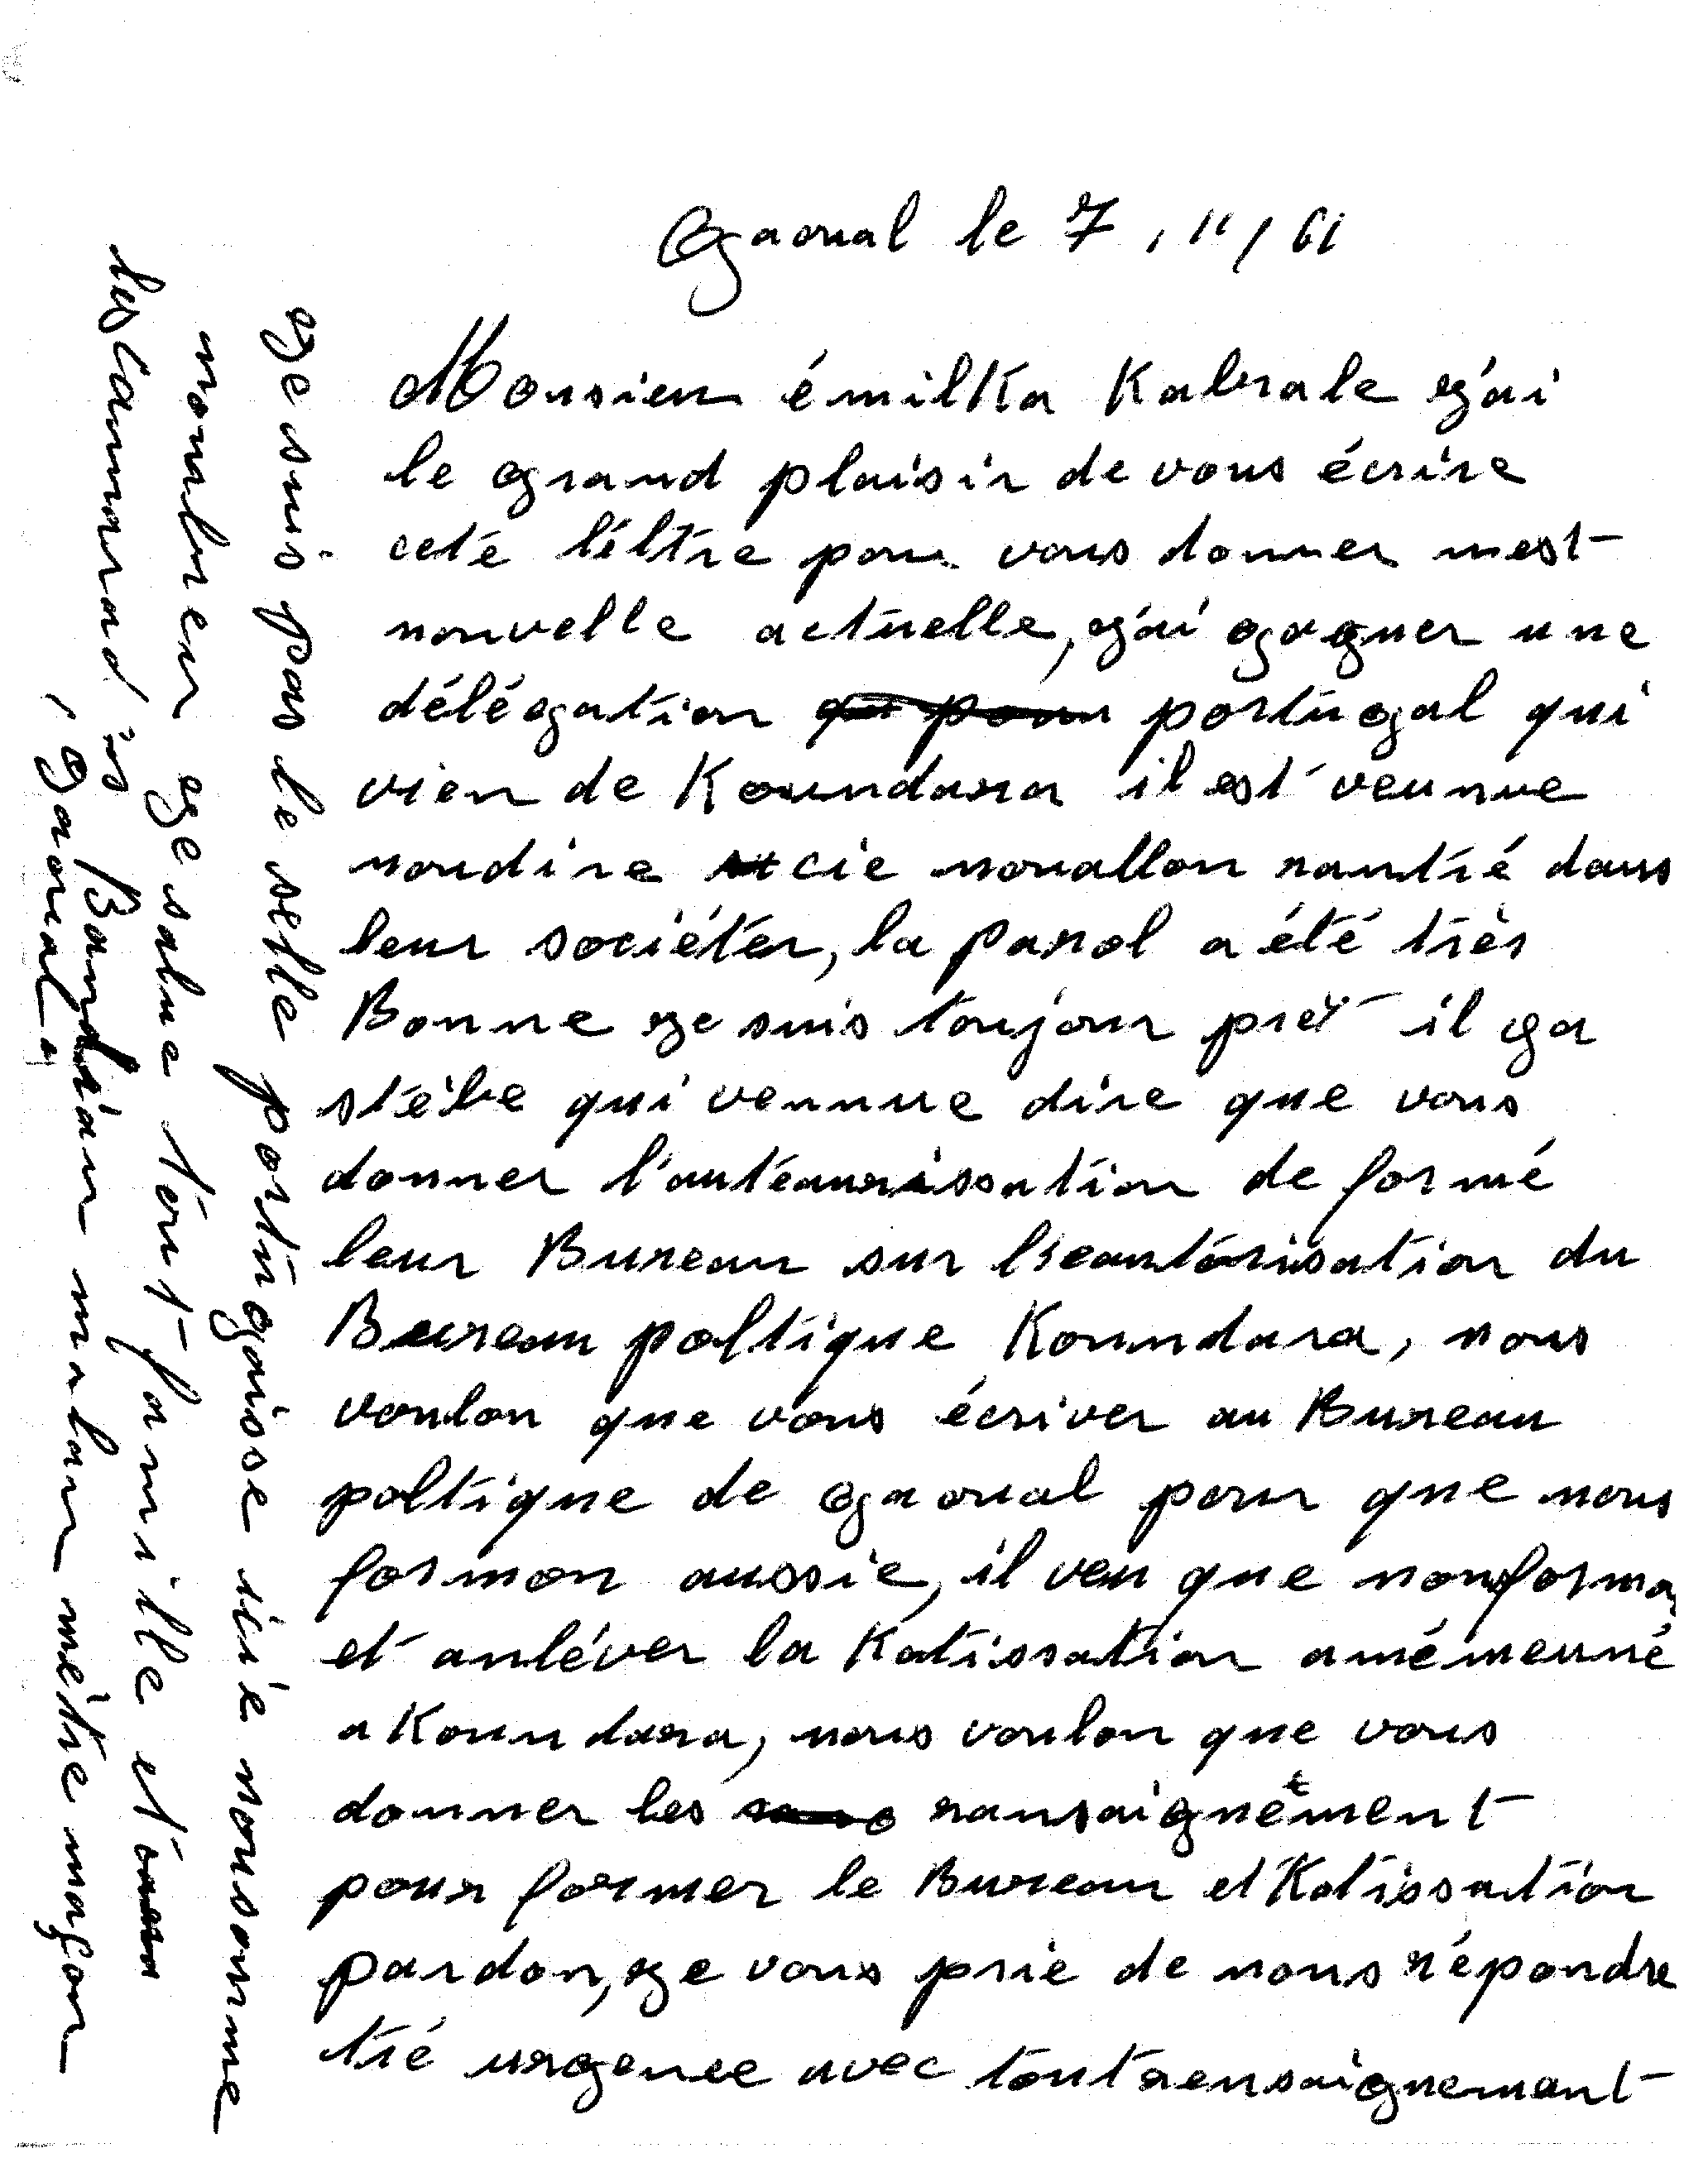 Gaoual le 7 / 11 / 61
Monsieur émilKa Kabrale g'ai
le grand plaisir de vous écrire
cete léltre pour vous donner mest
nouvelle actuelle, g'ai gagner une
délégation qui pour portugal qui
vien de Koundara il est veunue
noudire cie nouallon rantré dans
leur sociéter, la parol a été très
Bonne ge suis toujour prèt il ga
stèbe qui vennue dire que vous
donner l'autéaurissation de formé
leur Bureau sur l'reautorisation du
Bureau poltique Koundara, nous
voulon que vous écriver au Bureau
poltique de gaoual pour que nous
formon aussie, il veu que nousformon
et anléver la Katissation amémeuné
a Koundara, nous voulon que vous
donner les ransaignement
pour former le Bureau et Katissation
pardon, ge vous prie de nous répondre
tré urgence avec tout rensaignemant
ge suis pas le selle portugaise icie nousomme
nombreu ge salue tout famille et tous
les Cammarad is Bandian malan mètre maçon
, gaoual,